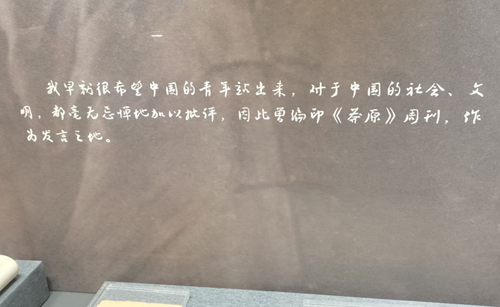 我早就很希望中国的青年站出来，对于中国的社会、文
明，都毫无忌惮地加以批评，因此曾编印《莽原》周刊，作
为发言之地。